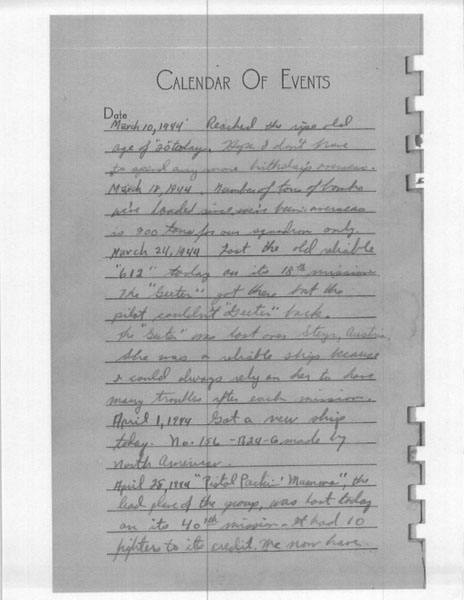 CALENDAR OF EVENTS
Date
March 10, 1944 Reached the ripe old
age of "20" today. Hope I don't have
to spend any more birthdays overseas.
March 18, 1944. Number of tons of bombs
we've loaded since we've been overseas
is 900 tons for our squadron only.
March 24, 1944 Lost the old reliable
"612" today on its 18th mission
The "Geeter" got there but the
pilot couldn't "Geeter" back.
The "Geeter" was lost over Steyr, Austria.
She was a reliable ship because
I could always rely on her to have
many troubles after each mission.
April 1, 1944 Got a new ship
today. No. 156 - B24-G made by
North American.
April 25, 1944 "Pistol Packin' Mamma", the
lead plane of the group, was lost today
on its 40th mission. It had 10
fighters to its credit. We now have